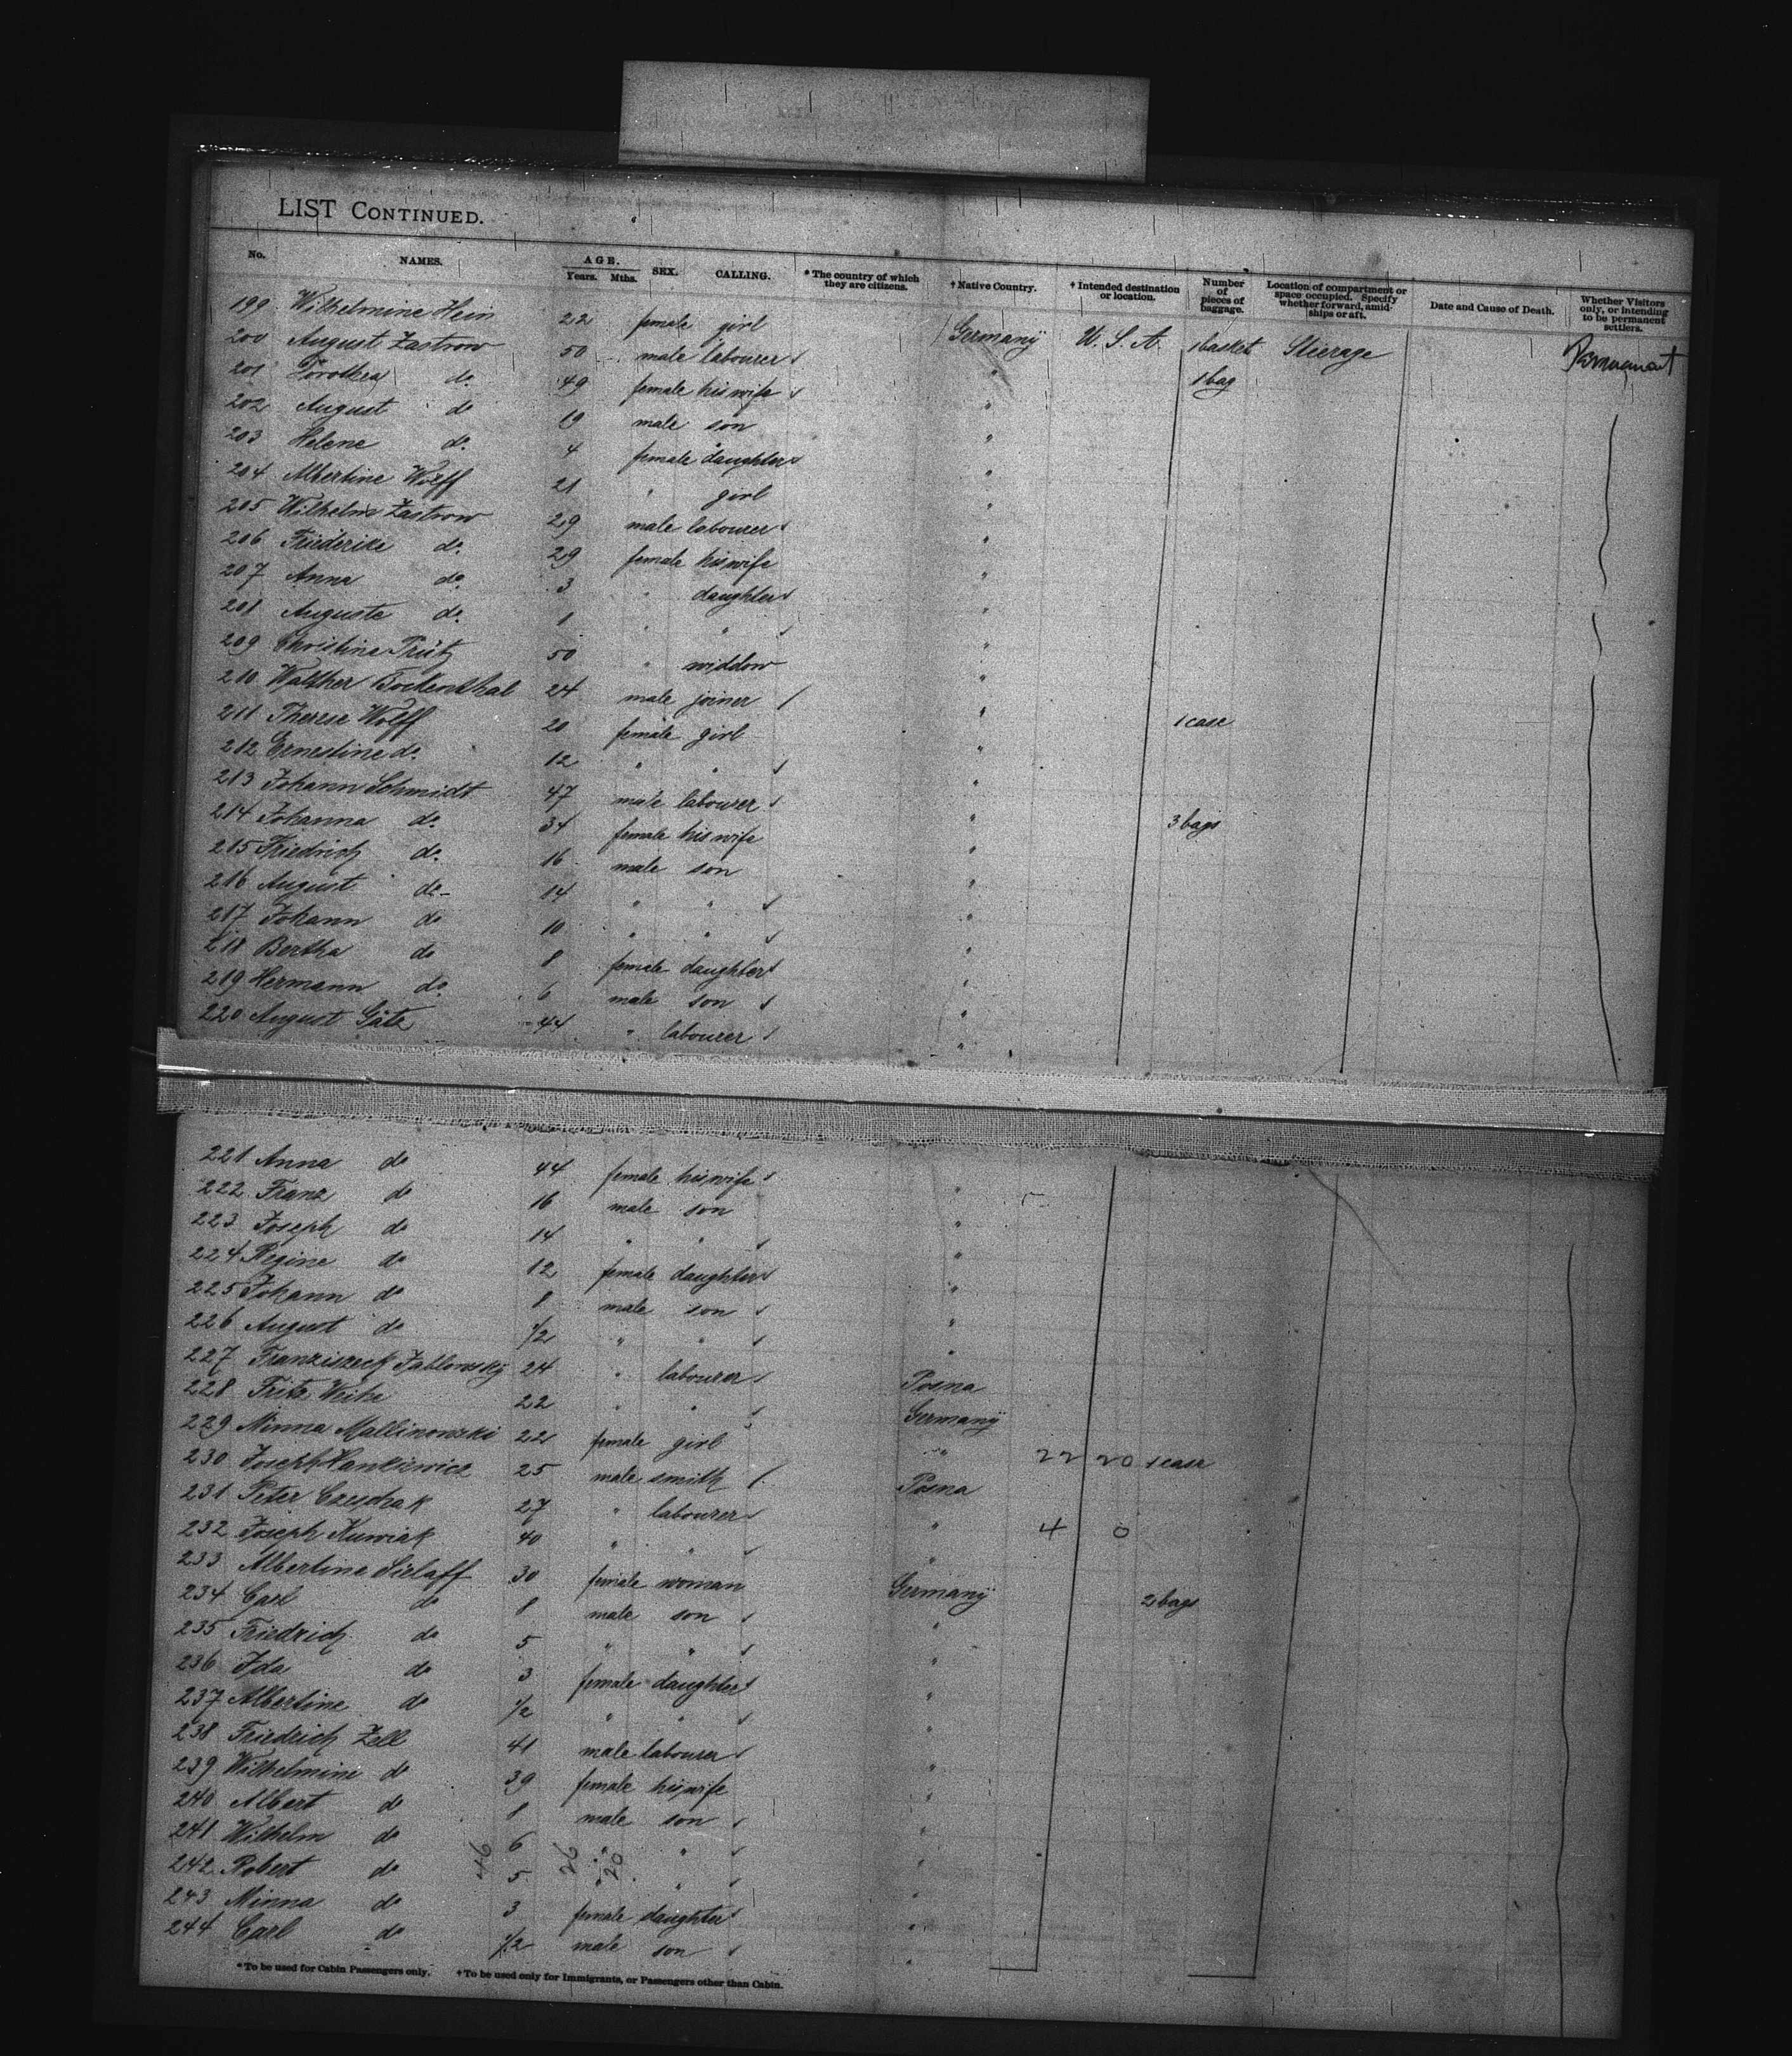 LIST CONTINUED.
No. NAMES. AGE. Years. Mths. SEX. CALLING. * The country of which they are citizens. † Native Country. † Intended destination or location. Number of pieces of baggage. Location of compartment or space occupied. Specify whether forward, amidships or aft. Date and Cause of Death. Whether Visitors only, or intending to be permanent settlers.
199 Wilhelmine Hein 22 female girl Germanÿ U. S. A. 1 basket Stierage Permanent
200 August Zastrow 50 male labourer " 1 bag
201 Dorothea do. 49 female his wife "
202 August do 19 male son "
203 Helene do. 4 female daughter "
204 Albertine Wolff 21 " girl "
205 Wilhelm Zastrow 29 male labourer "
206 Friederike do. 29 female his wife "
207 Anna do. 3 " daughter "
208 Auguste do. 1 " " "
209 Christine Prütz 50 " widdow "
210 Walther Bockenthal 24 male joiner "
211 Therese Wolff 20 female girl " 1 case
212 Ernestine do. 12 " " "
213 Johann Schmidt 47 male labourer "
214 Johanna do. 34 female his wife " 3 bags
215 Friedrich do. 16 male son "
216 August do- 14 " " "
217 Johann do 10 " " "
218 Bertha do 8 female daughter "
219 Hermann do. 6 male son "
220 August Götz 44 " labourer "
221 Anna do 44 female his wife "
222 Franz do 16 male son "
223 Joseph do 14 " " "
224 Regine do 12 female daughter "
225 Johann do 8 male son "
226 August do 1/2 " " "
227 Franziszeck Jablowskÿ 24 " labourer Posna
228 Fritz 22 " " Germanÿ
229 Minna Mallinowski 22 female girl " 22 20 1 case
230 Joseph Hankiewicz 25 male smith Posna
231 Peter Czeschak 27 " labourer " 4 0
232 Joseph Kuwiak 40 " " "
233 Albertine Sielaff 30 female woman Germanÿ 2 bags
234 Carl do 8 male son "
235 Friedrich do 5 " " "
236 Ida do 3 female daughter "
237 Albertine do 1/2 " " "
238 Friedrich Zell 41 male labourer "
239 Wilhelmine do 39 female his wife "
240 Albert do 8 male son "
241 Wilhelm do 6 " " "
242 Robert do 46 5 26 " 20 " "
243 Minna do 3 female daughter "
244 Carl do 1/2 male son "
* To be used for Cabin Passengers only. † To be used only for Immigrants, or Passengers other than Cabin.